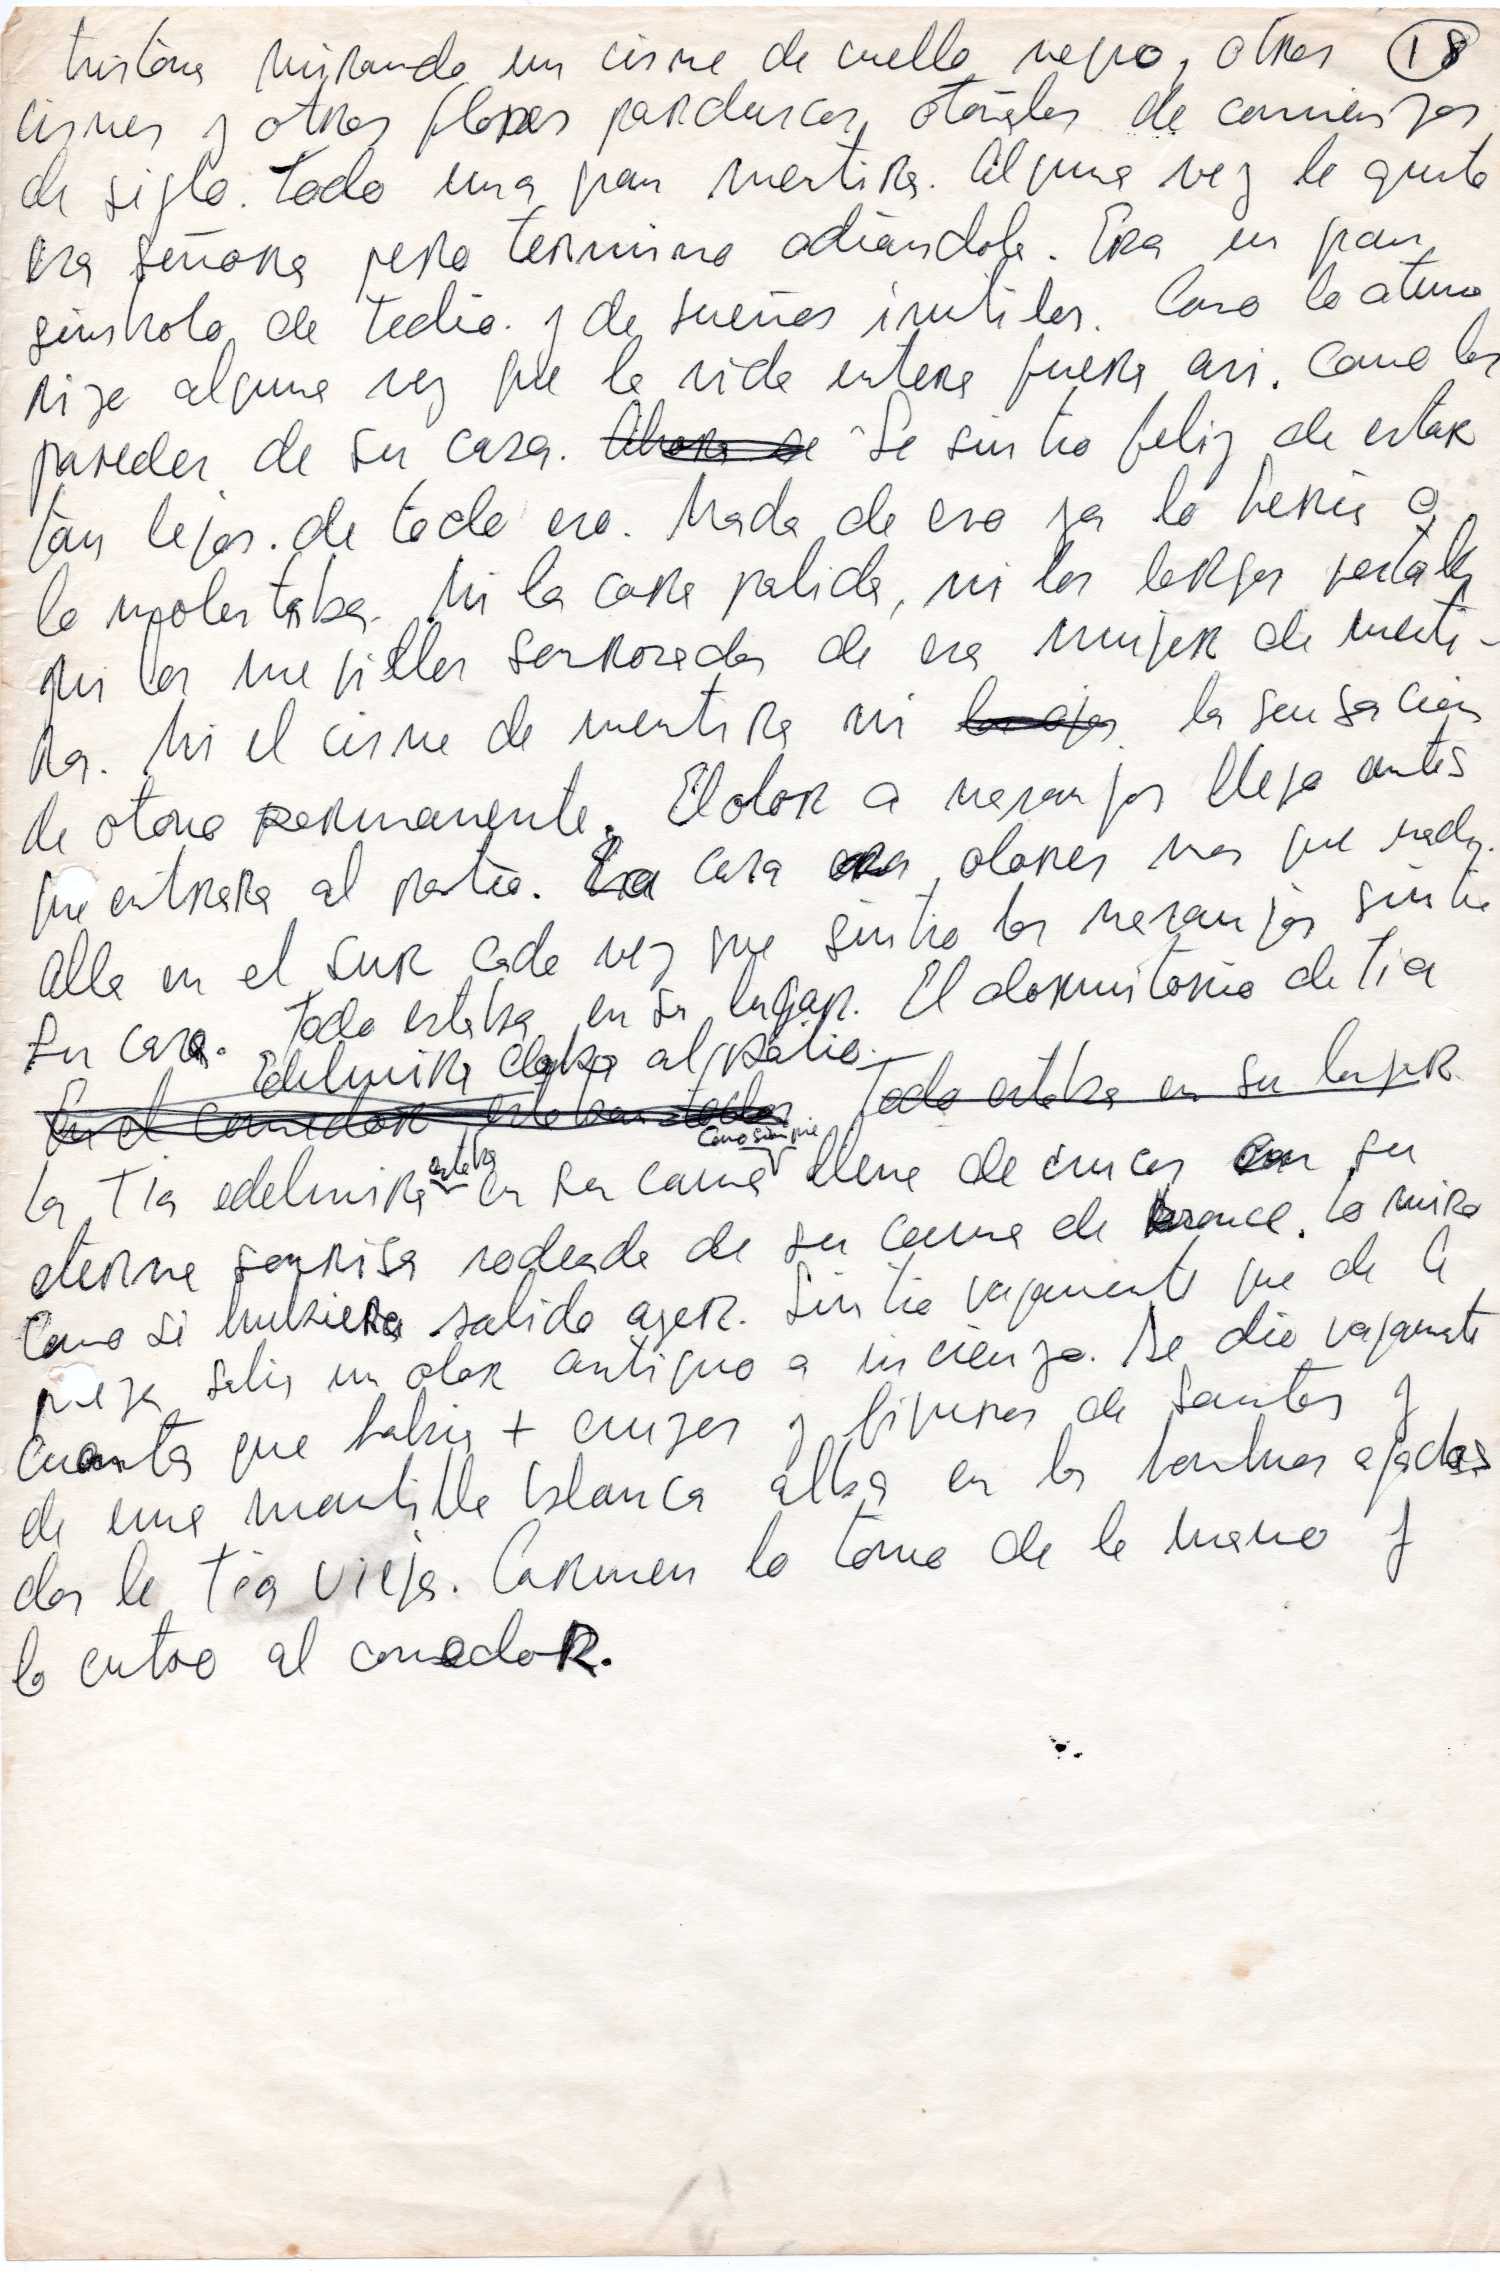 tristona mirando un cisne de cuello negro, otros 18
cisnes y otras flores parduscas, otoñales de comienzos
de siglo. Todo una gran mentira. Alguna vez le gusto
esa señora pero termino odiandola. Era un gran
simbolo de tedio. y de sueños inutiles. Como lo atemo
rizo alguna vez que la vida entera fuera asi. Como las
paredes de su casa. Ahora se Se sintio feliz de estar
tan lejos. de todo eso. Nada de eso ya lo heria o
lo molestaba. Ni la cara palida, ni los largos
ni las mejillas sonrosadas de esa mujer de menti-
ra. Ni el cisne de mentira ni los ojos la sensacion
de otono permanente. El olor a naranjos llego antes
que entrara al patio. Era casa olores mas que nada.
alla en el sur cada vez que sintio los naranjos sintio
su casa. Todo estaba en su lugar. El dormitorio de tia
Edelmira daba al patio.
En el comedor estaban todos Todo estaba en su lugar
como siempre
estaba
La Tia edelmira en su cama llena de cruces con su
eterna sonrisa rodeada de su cama de bronce. Lo miro
Como si hubiera salido ayer. Sintio vagamente que de la
pieza salia un olor antiguo a incienzo. Se dio vagamente
cuenta que habia + cruzes y figuras de santos y
de una mantilla blanca alba en los hombros ajados
dos la Tia vieja. Carmen lo tomo de la mano y
lo entro al comedor.